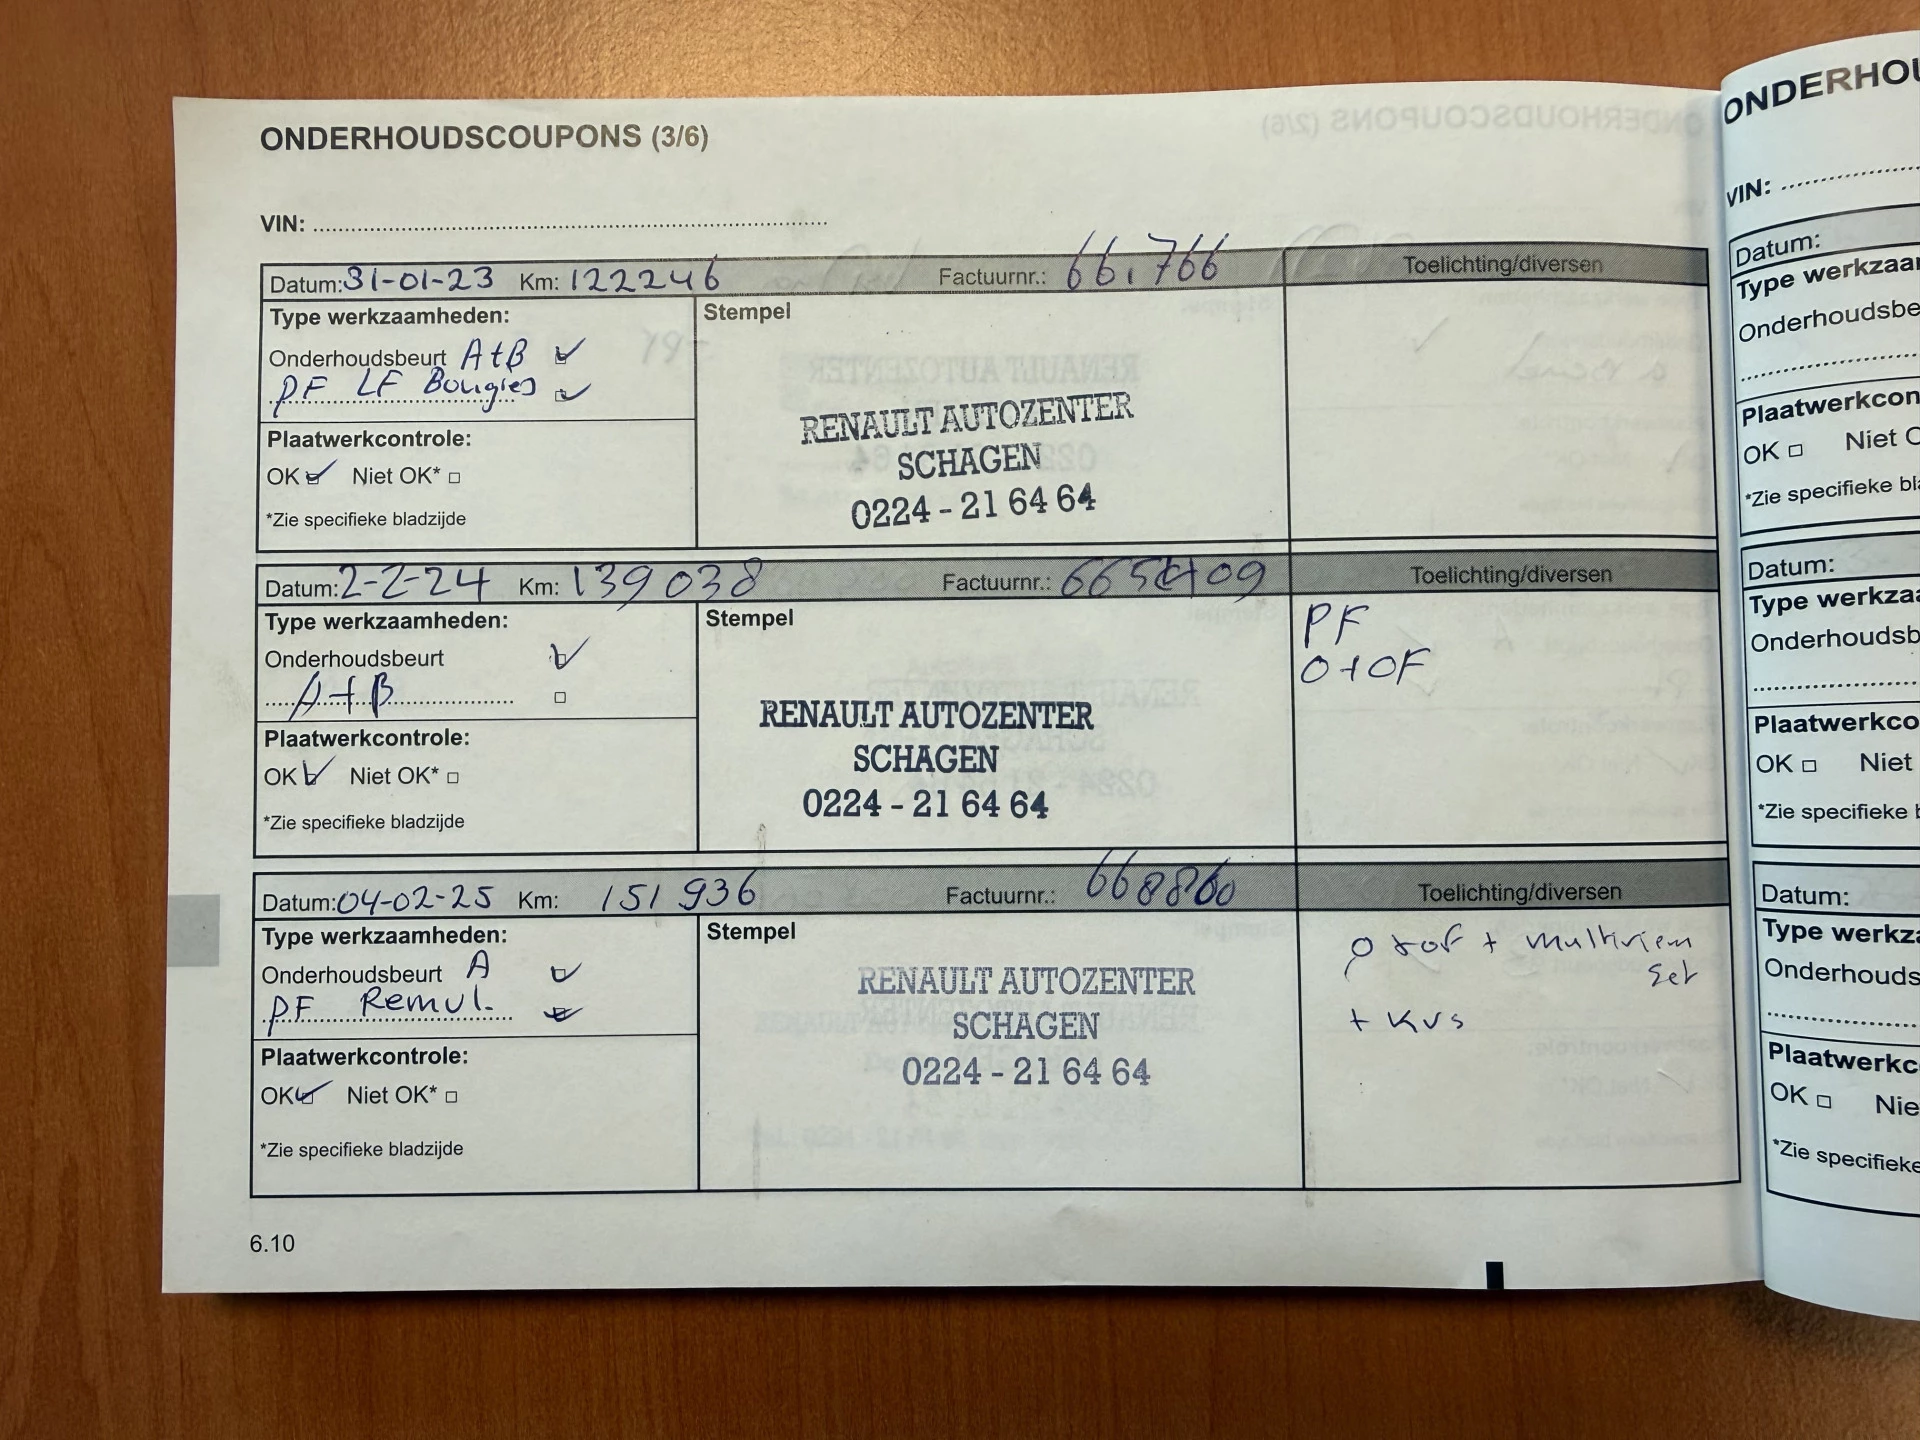 ONDERHOUDSCOUPONS (3/6)
VIN:
Datum: 31-01-23 Km: 122246 Factuurnr.: 661766 Toelichting/diversen
Type werkzaamheden:
Onderhoudsbeurt A+B
PF LF Bougies
Plaatwerkcontrole:
OK Niet OK*
*Zie specifieke bladzijde
Stempel
RENAULT AUTOZENTER
SCHAGEN
0224 - 21 64 64
Datum: 2-2-24 Km: 139038 Factuurnr.: Toelichting/diversen
Type werkzaamheden:
Onderhoudsbeurt
A+B
Plaatwerkcontrole:
OK Niet OK*
*Zie specifieke bladzijde
Stempel
RENAULT AUTOZENTER
SCHAGEN
0224 - 21 64 64
PF
O+OF
Datum: 04-02-25 Km: 151936 Factuurnr.: 668860 Toelichting/diversen
Type werkzaamheden:
Onderhoudsbeurt A
PF Remvl.
Plaatwerkcontrole:
OK Niet OK*
*Zie specifieke bladzijde
Stempel
RENAULT AUTOZENTER
SCHAGEN
0224 - 21 64 64
o+of + multiriem
set
+ KVS
6.10
ONDERHOU
VIN:
Datum:
Type werkzaa
Onderhoudsbe
Plaatwerkcon
OK Niet O
*Zie specifieke bla
Datum:
Type werkza
Onderhoudsb
Plaatwerkco
OK Niet
*Zie specifieke b
Datum:
Type werkz
Onderhouds
Plaatwerkc
OK Nie
*Zie specifieke